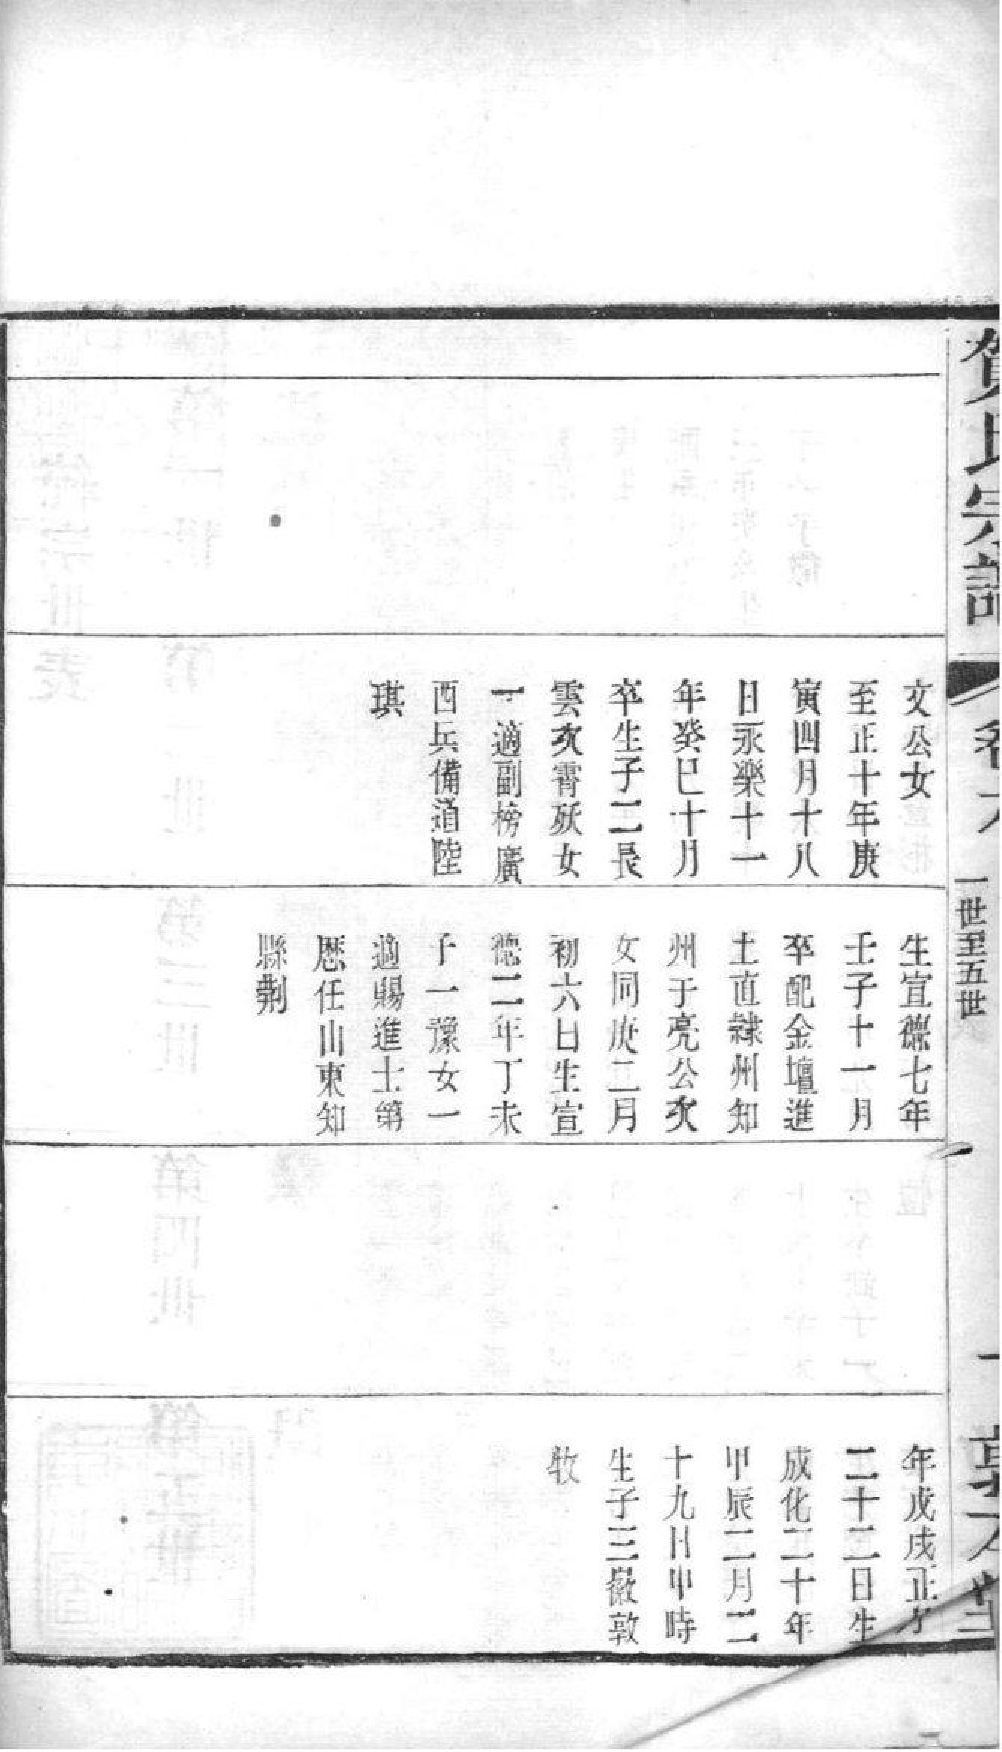 賀氏宗譜
卷六
一世至五世
一
敦本堂
文公女
至正十年庚
寅四月十八
日永樂十一
年癸巳十月
卒生子二長
雲次霄殀女
一適副榜廣
西兵備道陸
琪
生宣德七年
壬子十一月
卒配金壇進
士直隸州知
州于亮公次
女同庚二月
初六日生宣
德二年丁未
子一豫女一
適賜進士第
歷任山東知
縣荆
年戊戌正月
二十二日生
成化二十年
甲辰二月二
十九日申時
生子三徽敦
牧